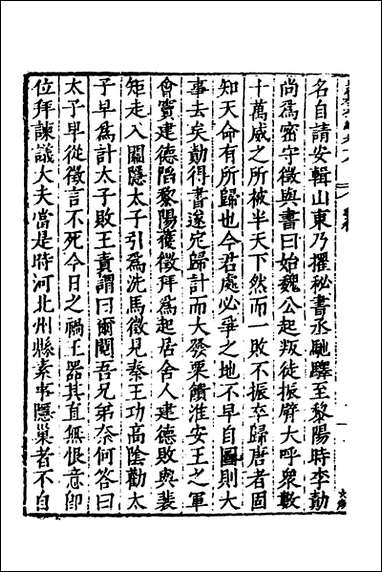 名自請安輯山東乃擢秘書丞馳驛至黎陽時李勣
尚爲密守徵與書曰始魏公起叛徒振臂大呼衆數
十萬威之所被半天下然而一敗不振卒歸唐者固
知天命有所歸也今君處必爭之地不早自圖則大
事去矣勣得書遂定歸計而大發粟饋淮安王之軍
會竇建德䧟黎陽獲徵拜爲起居舍人建德敗與裴
矩走入關隱太子引爲洗馬徵見秦王功高陰勸太
子早爲計太子敗王責謂曰爾鬩吾兄弟奈何答曰
太子早從徵言不死今日之禍王器其直無恨意卽
位拜諫議大夫當是時河北州縣素事隱巢者不自